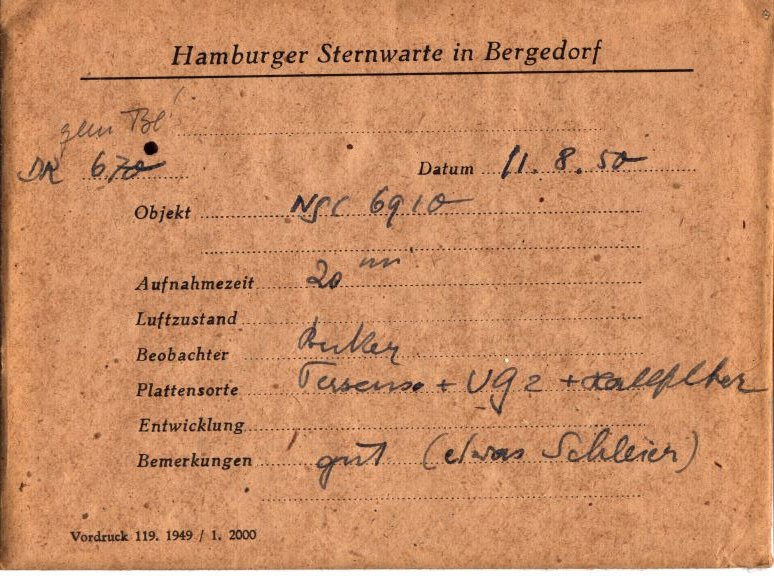 Hamburger Sternwarte in Bergedorf
gem Bl
DR 670 Datum 11. 8. 50
Objekt NGC 6910
Aufnahmezeit 20 m
Luftzustand
Beobachter
Plattensorte + UG2 +
Entwicklung
Bemerkungen gut (etwas Schleier)
Vordruck 119. 1949 / 1. 2000